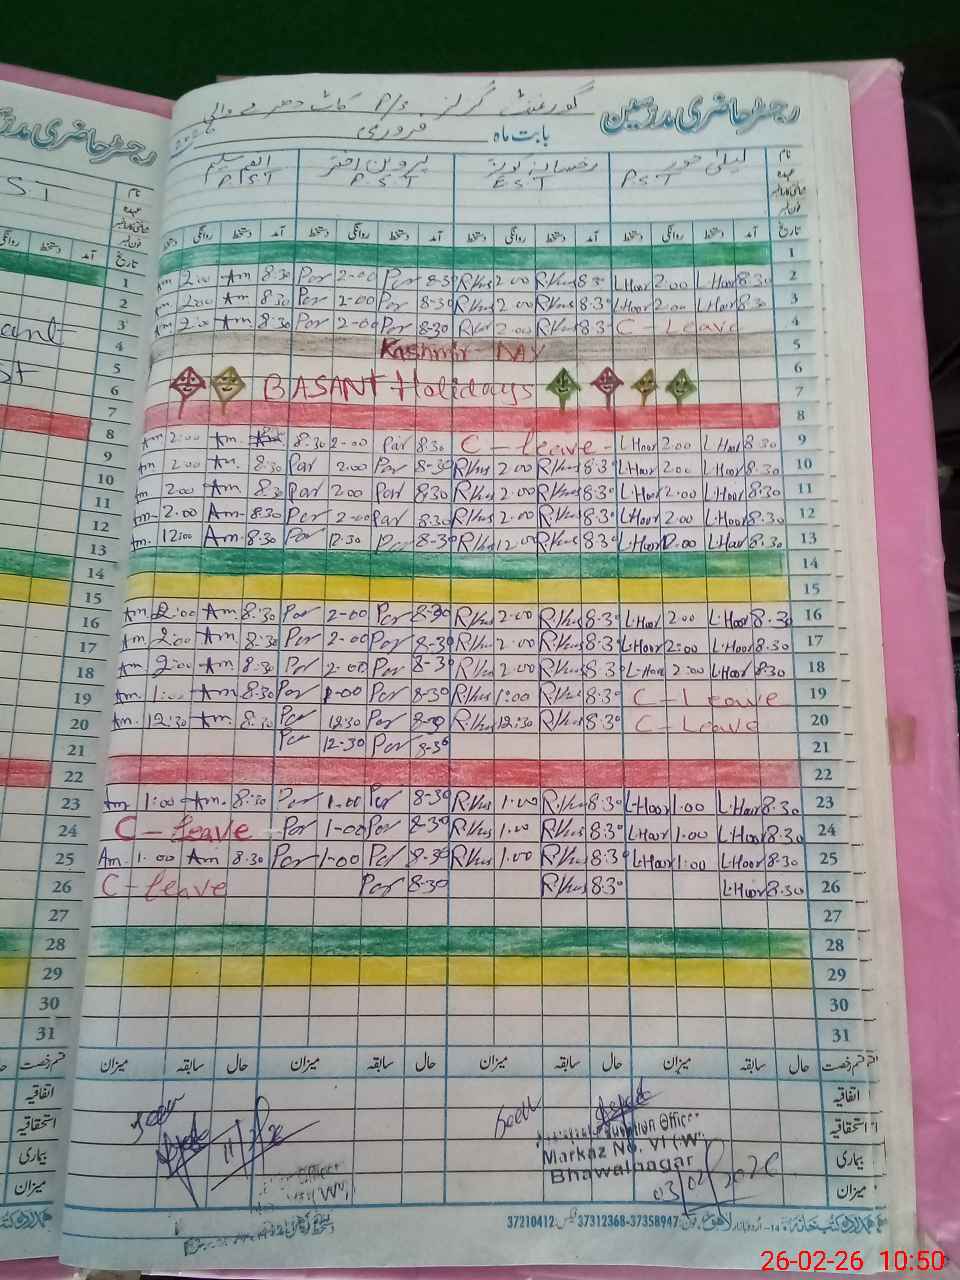 رجسٹر حاضری مدرسین گورنمنٹ گرلز P/S
بابت ماہ فروری
نام لیلیٰ حور رخسانہ کوثر پروین اختر
عہدہ P.S.T E.S.T P.S.T P.S.T
تاریخ آمد دستخط روانگی دستخط آمد دستخط روانگی دستخط آمد دستخط روانگی دستخط آمد دستخط روانگی دستخط
1
Am 2:00 Am 8:30 Par 2-00 Par 8-30 R.Kus 2.00 R.Kus 8.30 L.Hoor 2.00 L.Hoor 8.30 2
Am 2:00 Am 8:30 Par 2-00 Par 8-30 R.Kus 2.00 R.Kus 8.30 L.Hoor 2.00 L.Hoor 8.30 3
Am 2:00 Am 8:30 Par 2-00 Par 8-30 R.Kus 2.00 R.Kus 8.3 C-Leave 4
Kashmir-DAY 5
6
BASANT Holidays 7
8
Am 2:00 Am. 8.30 2-00 Par 8.30 C-leave- L.Hoor 2.00 L.Hoor 8.30 9
Am 2.00 Am. 8.30 Par 2.00 Par 8-30 R.Kus 2.00 R.Kus 8.30 L.Hoor 2.00 L.Hoor 8.30 10
Am 2.00 Am 8.30 Par 2.00 Par 8.30 R.Kus 2.00 R.Kus 8.30 L.Hoor 2.00 L.Hoor 8.30 11
Am- 2.00 Am- 8.30 Par 2-00 Par 8.30 R.Kus 2.00 R.Kus 8.30 L.Hoor 2.00 L.Hoor 8.30 12
Am. 12:00 Am- 8.30 Par 12.30 Par 8-30 R.Kus 12.00 R.Kus 8.30 L.Hoor 12.00 L.Hoor 8.30 13
14
15
Am 2:00 Am. 8:30 Par 2-00 Par 8-30 R.Kus 2.00 R.Kus 8.30 L.Hoor 2.00 L.Hoor 8.30 16
Am 2:00 Am. 8:30 Par 2-00 Par 8-30 R.Kus 2.00 R.Kus 8.30 L.Hoor 2:00 L.Hoor 8.30 17
Am 2:00 Am 8:30 Par 2-00 Par 8-30 R.Kus 2.00 R.Kus 8.30 L.Hoor 2:00 L.Hoor 8.30 18
Am. 1:00 Am 8.30 Par 1-00 Par 8-30 R.Kus 1:00 R.Kus 8.30 C-Leave 19
Am. 12:30 Am- 8.30 Par 12:30 Par 8-30 R.Kus 12:30 R.Kus 8.30 C-Leave 20
Par 12-30 Par 8-30 21
22
Am 1:00 Am. 8:30 Par 1.00 Par 8-30 R.Kus 1.00 R.Kus 8.30 L.Hoor 1.00 L.Hoor 8.30 23
C-leave Par 1-00 Par 8-30 R.Kus 1.00 R.Kus 8.30 L.Hoor 1.00 L.Hoor 8.30 24
Am. 1.00 Am 8.30 Par 1-00 Par 8-30 R.Kus 1.00 R.Kus 8.30 L.Hoor 1:00 L.Hoor 8.30 25
C-leave Par 8-30 R.Kus 8.30 L.Hoor 8.30 26
27
28
29
30
31
قسم رخصت حال سابقہ میزان حال سابقہ میزان حال سابقہ میزان حال سابقہ میزان
اتفاقیہ
استحقاقیہ
بیماری
میزان
Seen
Seen
Education Officer
Markaz No. VI (W)
Bhawalnagar
03/02/2026
37210412 فیکس 37312368-37358947
26-02-26 10:50